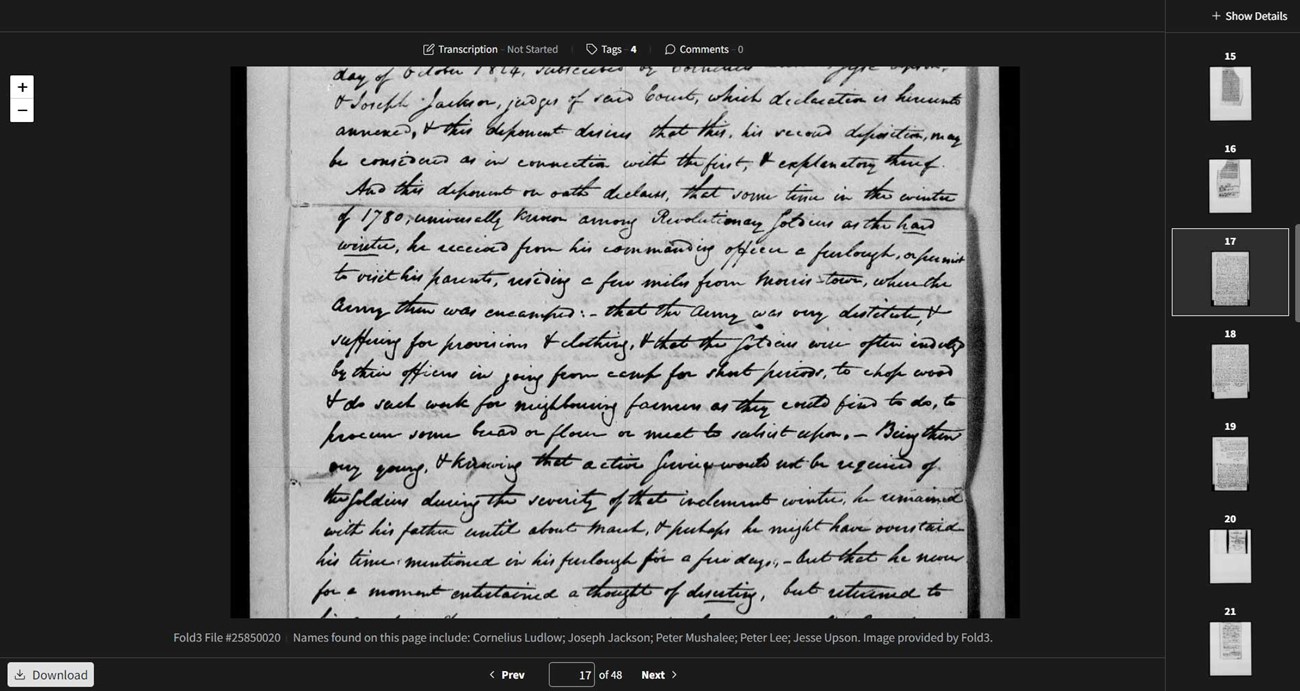 + Show Details
Transcription - Not Started
Tags - 4
Comments - 0
+
−
day of October 1824, subscribed by Cornelius Jesse Upson,
& Joseph Jackson, judges of said Court, which declaration is hereunto
annexed, & this deponent desires that this, his second deposition, may
be considered as in connection with the first, & explanatory thereof.
And this deponent on oath declares, that some time in the winter
of 1780, universally known among Revolutionary Soldiers as the hard
winter, he received from his commanding officer a furlough, or permit
to visit his parents, residing a few miles from Morris-town, where the
Army then was encamped:- that the Army was very destitute, &
suffering for provisions & clothing, & that the Soldiers were often indulged
by their officers in going from camp for short periods, to chop wood
& do such work for neighbouring farmers as they could find to do, to
procure some bread or flour or meat to subsist upon,- Being then
very young, & knowing that active service would not be required of
the Soldiers during the severity of that inclement winter, he remained
with his father until about March, & perhaps he might have overstaid
his time mentioned in his furlough for a few days,- but that he never
for a moment entertained a thought of deserting, but returned to
Fold3 File #25850020
Names found on this page include: Cornelius Ludlow; Joseph Jackson; Peter Mushalee; Peter Lee; Jesse Upson. Image provided by Fold3.
Download
Prev
17 of 48
Next
15
16
17
18
19
20
21